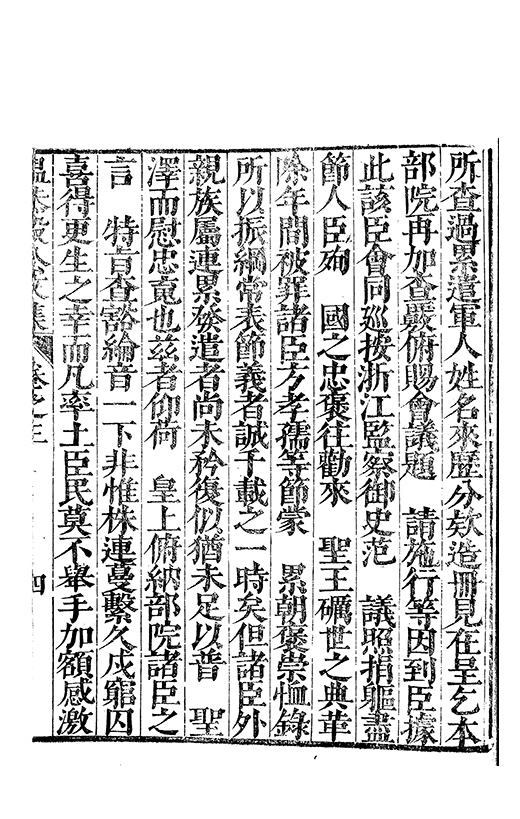 所查過累遣軍人姓名來歷分欵造冊見在呈乞本
部院再加查覈俯賜會議題　請施行等因到臣據
此該臣會同廵按浙江監察御史范　議照捐軀盡
節人臣殉　國之忠褒往勸來　聖王礪世之典革
除年間被罪諸臣方孝孺等節蒙　累朝褒崇恤錄
所以振綱常表節義者誠千載之一時矣但諸臣外
親族屬連累發遣者尚未矜復似猶未足以普　聖
澤而慰忠䰟也兹者仰荷　皇上俯納部院諸臣之
言　特言查豁綸音一下非惟株連蔓繫久戍窮囚
喜得更生之幸而凡率土臣民莫不舉手加額感激
公文集　卷之三　四